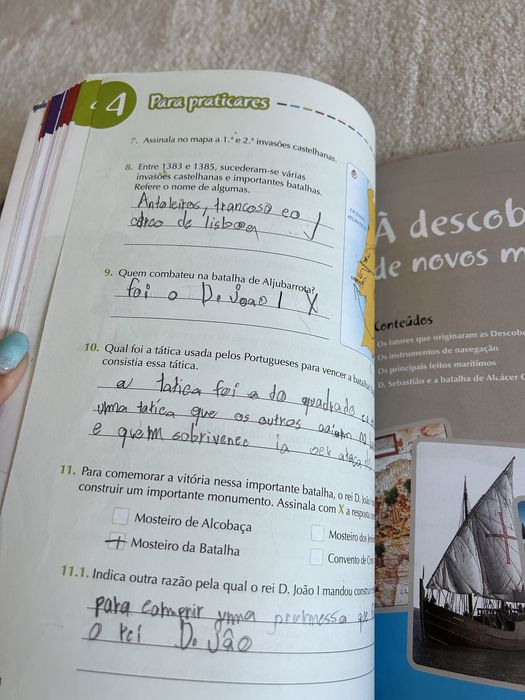 4
Para praticares
7. Assinala no mapa a 1.ª e 2.ª invasões castelhanas.
8. Entre 1383 e 1385, sucederam-se várias
invasões castelhanas e importantes batalhas.
Refere o nome de algumas.
Antoleiros, trancoso e o
cerco de lisboa
9. Quem combateu na batalha de Aljubarrota?
foi o D. João I X
10. Qual foi a tática usada pelos Portugueses para vencer a batalha
consistia essa tática.
a tatica foi a do quadrado
uma tatica que os outros
e quem sobrivenec ia ser
11. Para comemorar a vitória nessa importante batalha, o rei D. João
construir um importante monumento. Assinala com X a resposta
Mosteiro de Alcobaça
Mosteiro dos
Mosteiro da Batalha
Convento de
11.1. Indica outra razão pela qual o rei D. João I mandou construir
para comprir uma promessa que
o rei D. João
À descob
de novos m
Conteúdos
Os fatores que originaram as Descob
Os instrumentos de navegação
Os principais feitos marítimos
D. Sebastião e a batalha de Alcácer